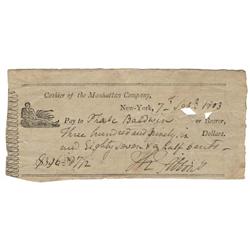 Cashier of the Manhattan Company,
New-York, 7th Sept 1803
Pay to Isaac Baldwin or Bearer,
Three hundred and ninety six Dollars.
and Eighty seven & a half cents
$396 87 1/2